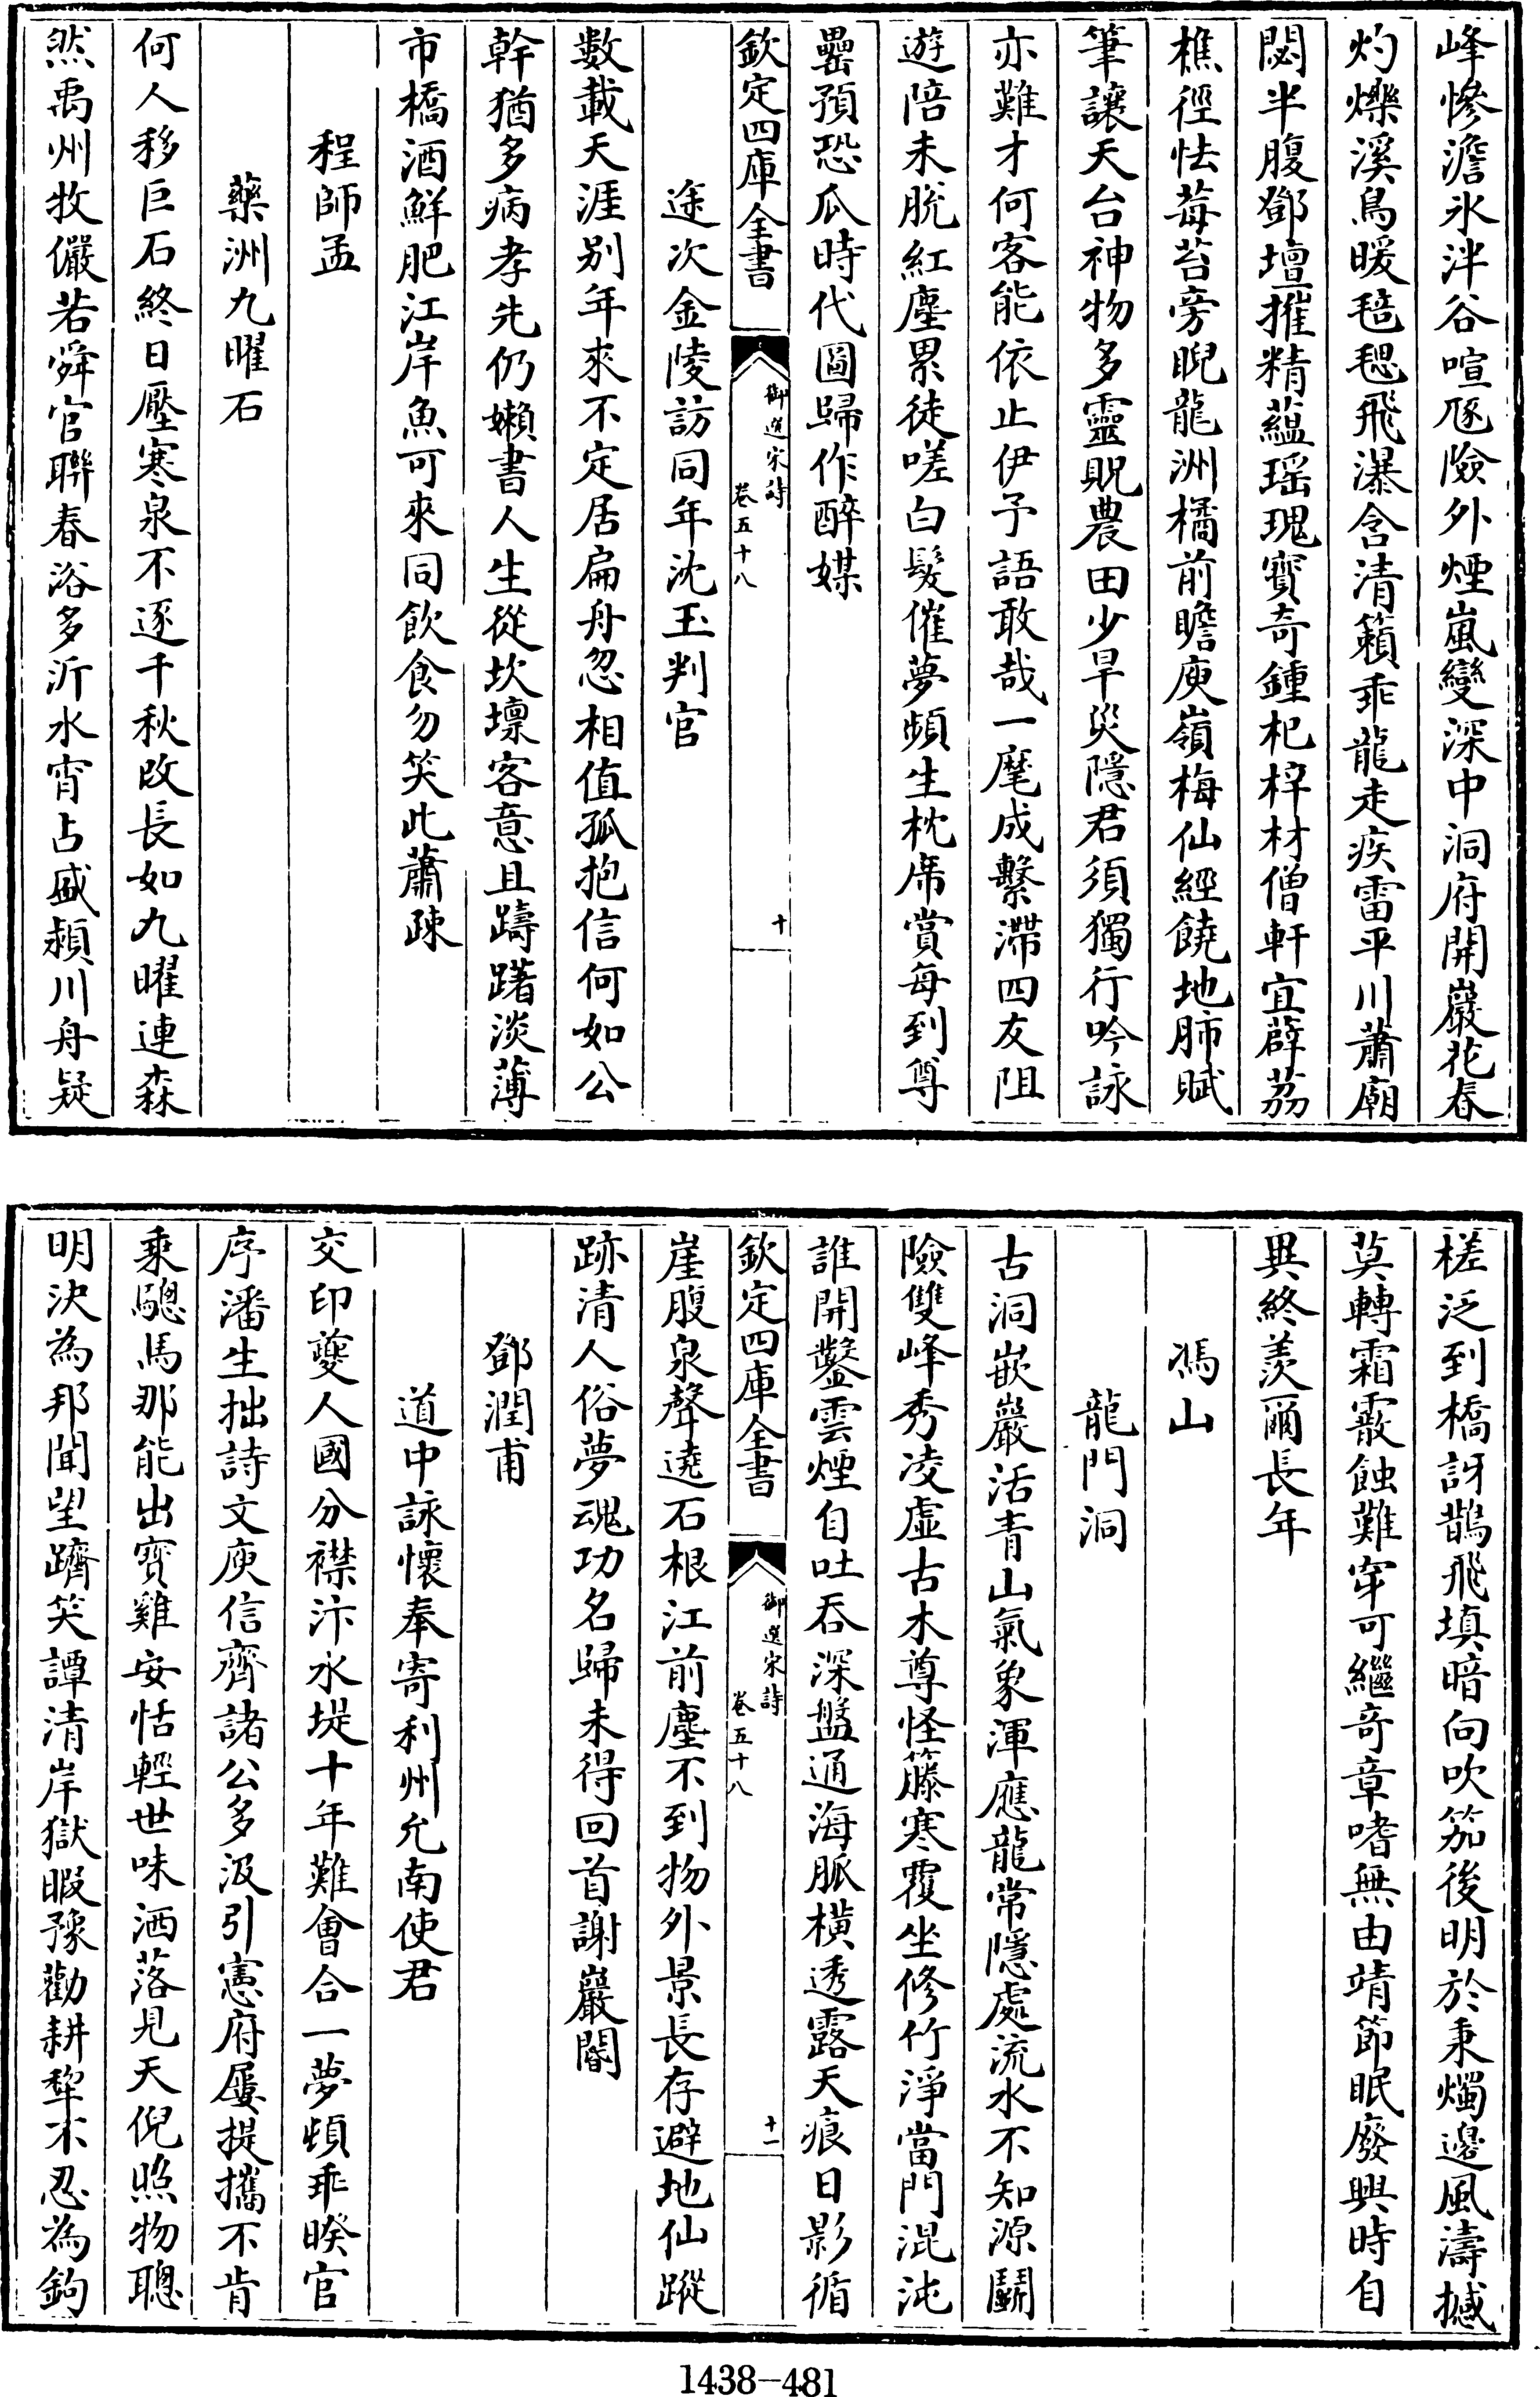 峰慘澹氷泮谷喧豗險外煙嵐變深中洞府開巖花春
灼爍溪鳥暖毰毸飛瀑含清籟乖龍走疾雷平川蕭廟
閟半腹鄧壇摧精蘊瑶瑰寳奇鍾杞梓材僧軒宜薜荔
樵徑怯莓苔旁睨龍洲橘前瞻庾嶺梅仙經饒地肺賦
筆讓天台神物多靈貺農田少旱災隱君須獨行吟詠
亦難才何客能依止伊予語敢哉一麾成繫滯四友阻
遊陪未脱紅塵累徒嗟白髮催夢頻生枕席賞每到尊
罍預恐瓜時代圖歸作醉媒
欽定四庫全書
御選宋詩
卷五十八
十
途次金陵訪同年沈玉判官
數載天涯别年來不定居扁舟忽相值孤抱信何如公
幹猶多病孝先仍嬾書人生從坎壈客意且躊躇淡薄
市橋酒鮮肥江岸魚可來同飲食勿笑此蕭疎
程師孟
藥洲九曜石
何人移巨石終日壓寒泉不逐千秋改長如九曜連森
然禹州牧儼若舜官聯春浴多沂水宵占盛潁川舟疑
槎泛到橋訝鵲飛填暗向吹笳後明於秉燭邊風濤撼
莫轉霜霰蝕難穿可繼奇章嗜無由靖節眠廢興時自
異終羨爾長年
馮山
龍門洞
古洞嵌巖活青山氣象渾應龍常隱處流水不知源鬬
險雙峰秀凌虛古木尊怪籐寒覆坐修竹淨當門混沌
誰開鑿雲煙自吐吞深盤通海脈橫透露天痕日影循
欽定四庫全書
御選宋詩
卷五十八
十一
崖腹泉聲遶石根江前塵不到物外景長存避地仙蹤
跡清人俗夢魂功名歸未得回首謝巖閽
鄧潤甫
道中詠懷奉寄利州允南使君
交印夔人國分襟汴水堤十年難會合一夢頻乖睽官
序潘生拙詩文庾信齊諸公多汲引憲府屢提攜不肯
乘驄馬那能出寳雞安恬輕世味洒落見天倪照物聰
明決為邦聞望躋笑譚清岸獄暇豫勸耕犂不忍為鉤
1438-481